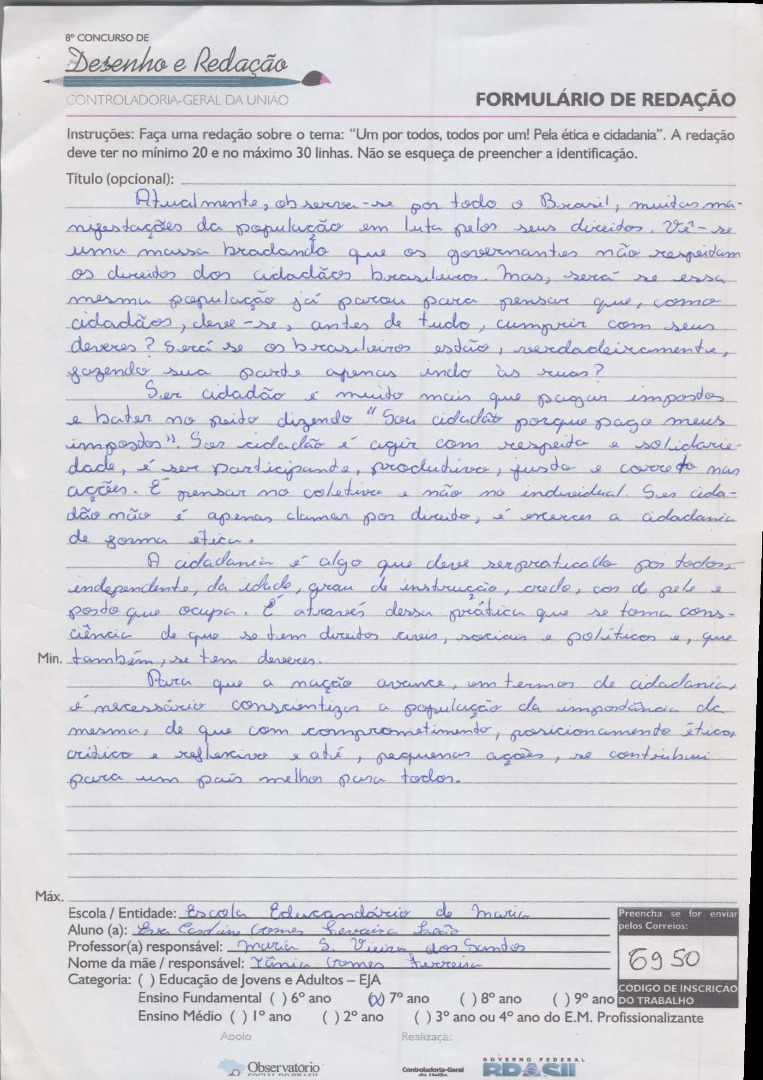 8º CONCURSO DE
Desenho e Redação
CONTROLADORIA-GERAL DA UNIÃO
FORMULÁRIO DE REDAÇÃO
Instruções: Faça uma redação sobre o tema: “Um por todos, todos por um! Pela ética e cidadania”. A redação
deve ter no mínimo 20 e no máximo 30 linhas. Não se esqueça de preencher a identificação.
Título (opcional):
Atualmente, observa-se por todo o Brasil, muitas ma-
nifestações da população em luta pelos seus direitos. Vê-se
uma massa bradando que os governantes não respeidam
os direitos dos cidadãos brasileiros. Mas, será se essa
mesma população já parou para pensar que, como
cidadãos, deve-se, antes de tudo, cumprir com seus
deveres? Será se os brasileiros estão, verdadeiramente,
fazendo sua parte apenas indo às ruas?
Ser cidadão é muito mais que pagar impostos
e bater no peito dizendo “Sou cidadão porque pago meus
impostos”. Ser cidadão é agir com respeito e solidarie-
dade, é ser participante, produtivo, justo e correto nas
ações. É pensar no coletivo e não no individual. Ser cida-
dão não é apenas clamar por direito, é exercer a cidadania
de forma ética.
A cidadania é algo que deve ser praticado por todos,
independente, da idade, grau de instrução, credo, cor de pele e
posto que ocupa. É através dessa prática que se toma cons-
ciência de que se tem direitos civis, sociais e políticos e, que
Min. também, se tem deveres.
Para que a nação avance, em termos de cidadania,
é necessário conscientizar a população da importância da
mesma, de que com comprometimento, posicionamento ético,
crítico e reflexivo e até, pequenas ações, se contribui
para um país melhor para todos.
Máx.
Escola / Entidade: Escola Educandário de Maria
Aluno (a): Gomes Ferreira Leão
Professor(a) responsável: Maria S. Vieira dos Santos
Nome da mãe / responsável: Tânia Gomes Ferreira
Categoria: ( ) Educação de Jovens e Adultos – EJA
Ensino Fundamental ( ) 6º ano (x) 7º ano ( ) 8º ano ( ) 9º ano
Ensino Médio ( ) 1º ano ( ) 2º ano ( ) 3º ano ou 4º ano do E.M. Profissionalizante
Preencha se for enviar
pelos Correios:
6950
CÓDIGO DE INSCRIÇÃO
DO TRABALHO
Apoio
Realização:
Observatório
SOCIAL DO BRASIL
Controladoria-Geral
da União
GOVERNO FEDERAL
BRASIL